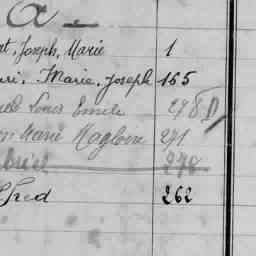 a
t, Joseph, Marie 1
ri, Marie, Joseph 165
Louis Emile 278 D
René Magloire 271
278
red 262